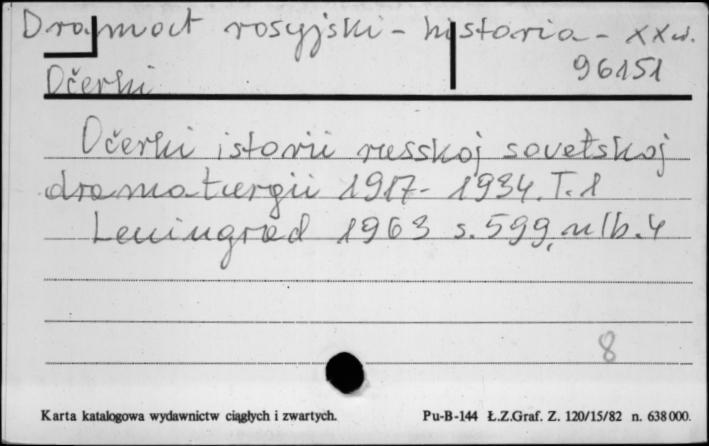 Dramat rosyjski - historia - XX w.
96151
Očerki
Očerki istorii russkoj sovetskoj
dramaturgii 1917-1934. T. 1
Leningrad 1963 s. 599, nlb. 4
8
Karta katalogowa wydawnictw ciągłych i zwartych.
Pu-B-144 Ł.Z.Graf. Z. 120/15/82 n. 638000.